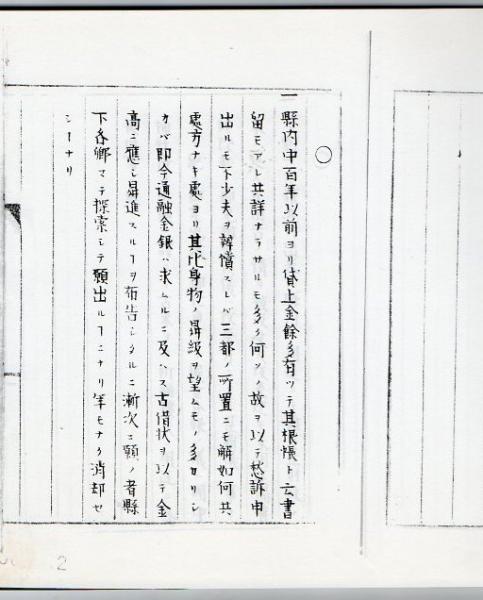 〇
一 縣内中百年以前ヨリ貸上金餘多有ツテ其根帳ト云書
留モアレ共詳ナラサルモ多ク何ソノ故ヲ以テ愁訴申
出ルモ不少夫ヲ辨償スレバ三都ノ所置ニモ解如何共
處方ナキ處ヨリ其比身物ノ昇級ヲ望ムモノ多カリシ
カバ即今通融金銀ハ求ムルニ及ハス古借状ヲ以テ金
高ニ應シ昇進スルヿヲ布告シタルニ漸次ニ願ノ者縣
下各郷マテ探索シテ願出ルヿニナリ年モナク消却セ
シヿナリ
2